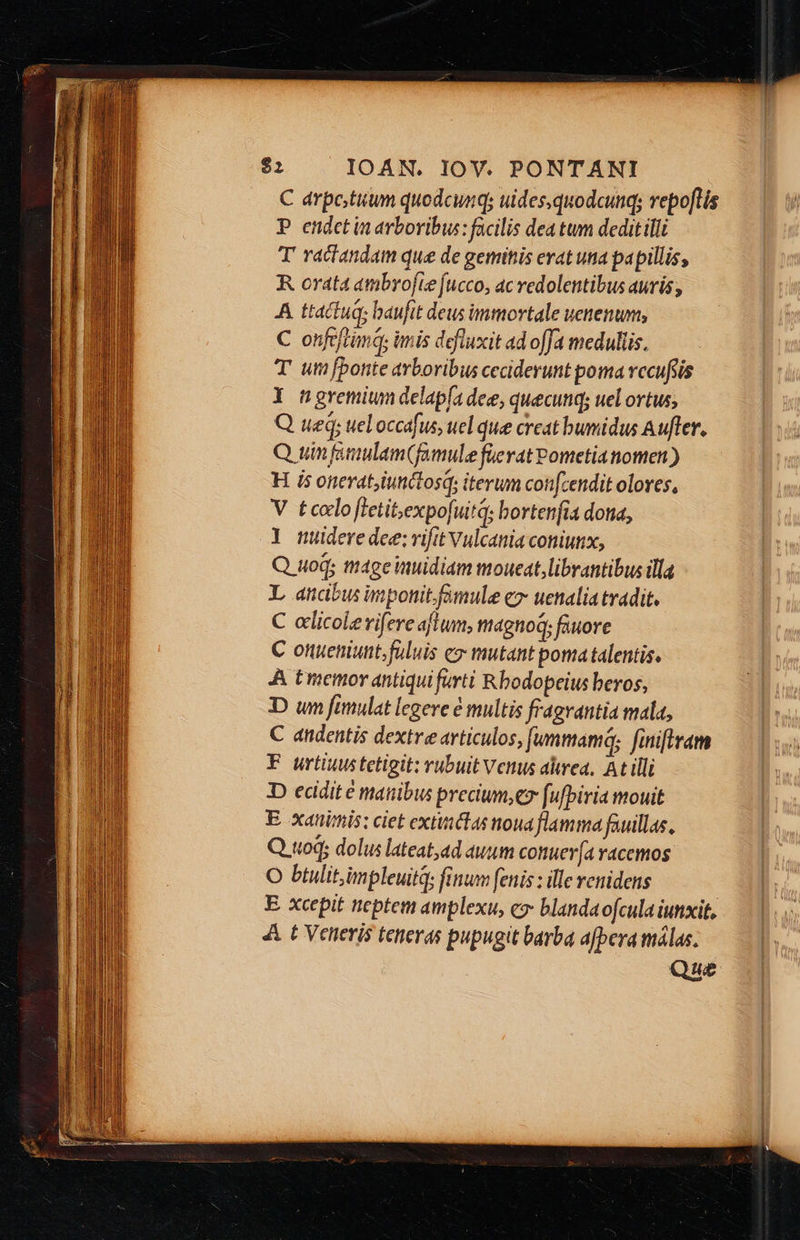 82 IOAN. IOV. PONTANI
C arpe, tuum quodcunq; uides, quodcunq; repostis
P endet in arboribus: facilis dea tum dedit illi
T ractandam quæ de geminis erat una papillis,
R orata ambrosiæ succo, ac redolentibus auris,
A ttactuq; hausit deus immortale uenenum,
C onfestimq; imis defluxit ad ossa medullis.
T um sponte arboribus ceciderunt poma recussis
I n gremium delapsa deæ, quæcunq; uel ortus,
Q ueq; uel occasus, uel quæ creat humidus Auster.
Q uin famulam (famulæ fuerat Pometia nomen)
H is onerat, iunctosq; iterum conscendit olores.
V t cœlo stetit, exposuitq; hortensia dona,
I nuidere deæ: risit Vulcania coniunx,
Q uoq; mage inuidiam moueat, librantibus illa
L ancibus imponit, famulæ & uenalia tradit.
C œlicolæ risere astum, magnoq; fauore
C onueniunt, fuluis & mutant poma talentis.
A t memor antiqui furti Rhodopeius heros,
D um simulat legere è multis fragrantia mala,
C andentis dextræ articulos, summamq; sinistram
F urtiuus tetigit: rubuit Venus aurea. At illi
D ecidit è manibus precium, & suspiria mouit
E xanimis: ciet extinctas noua flamma fauillas.
Q uoq; dolus lateat, ad auum conuersa racemos
O btulit, impleuitq; sinum senis: ille renidens
E xcepit neptem amplexu, & blanda oscula iunxit.
A t Veneris teneras pupugit barba aspera málas.
Quæ